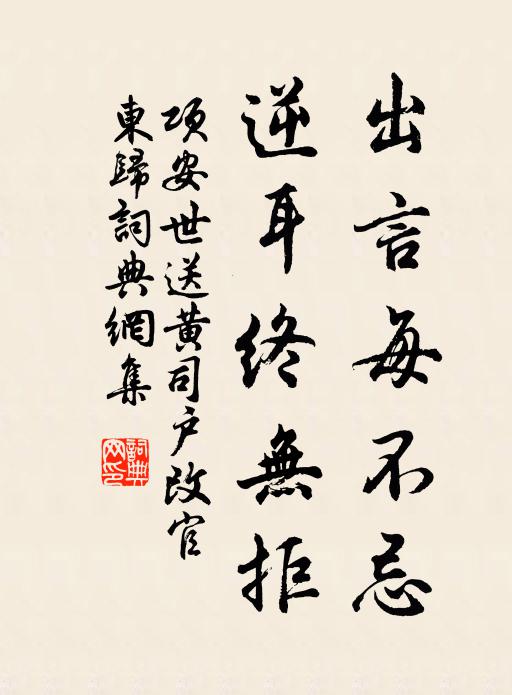 出言每不忌
逆耳終無拒
項安世送黄司户改官
東歸詞典網集
詞典網印